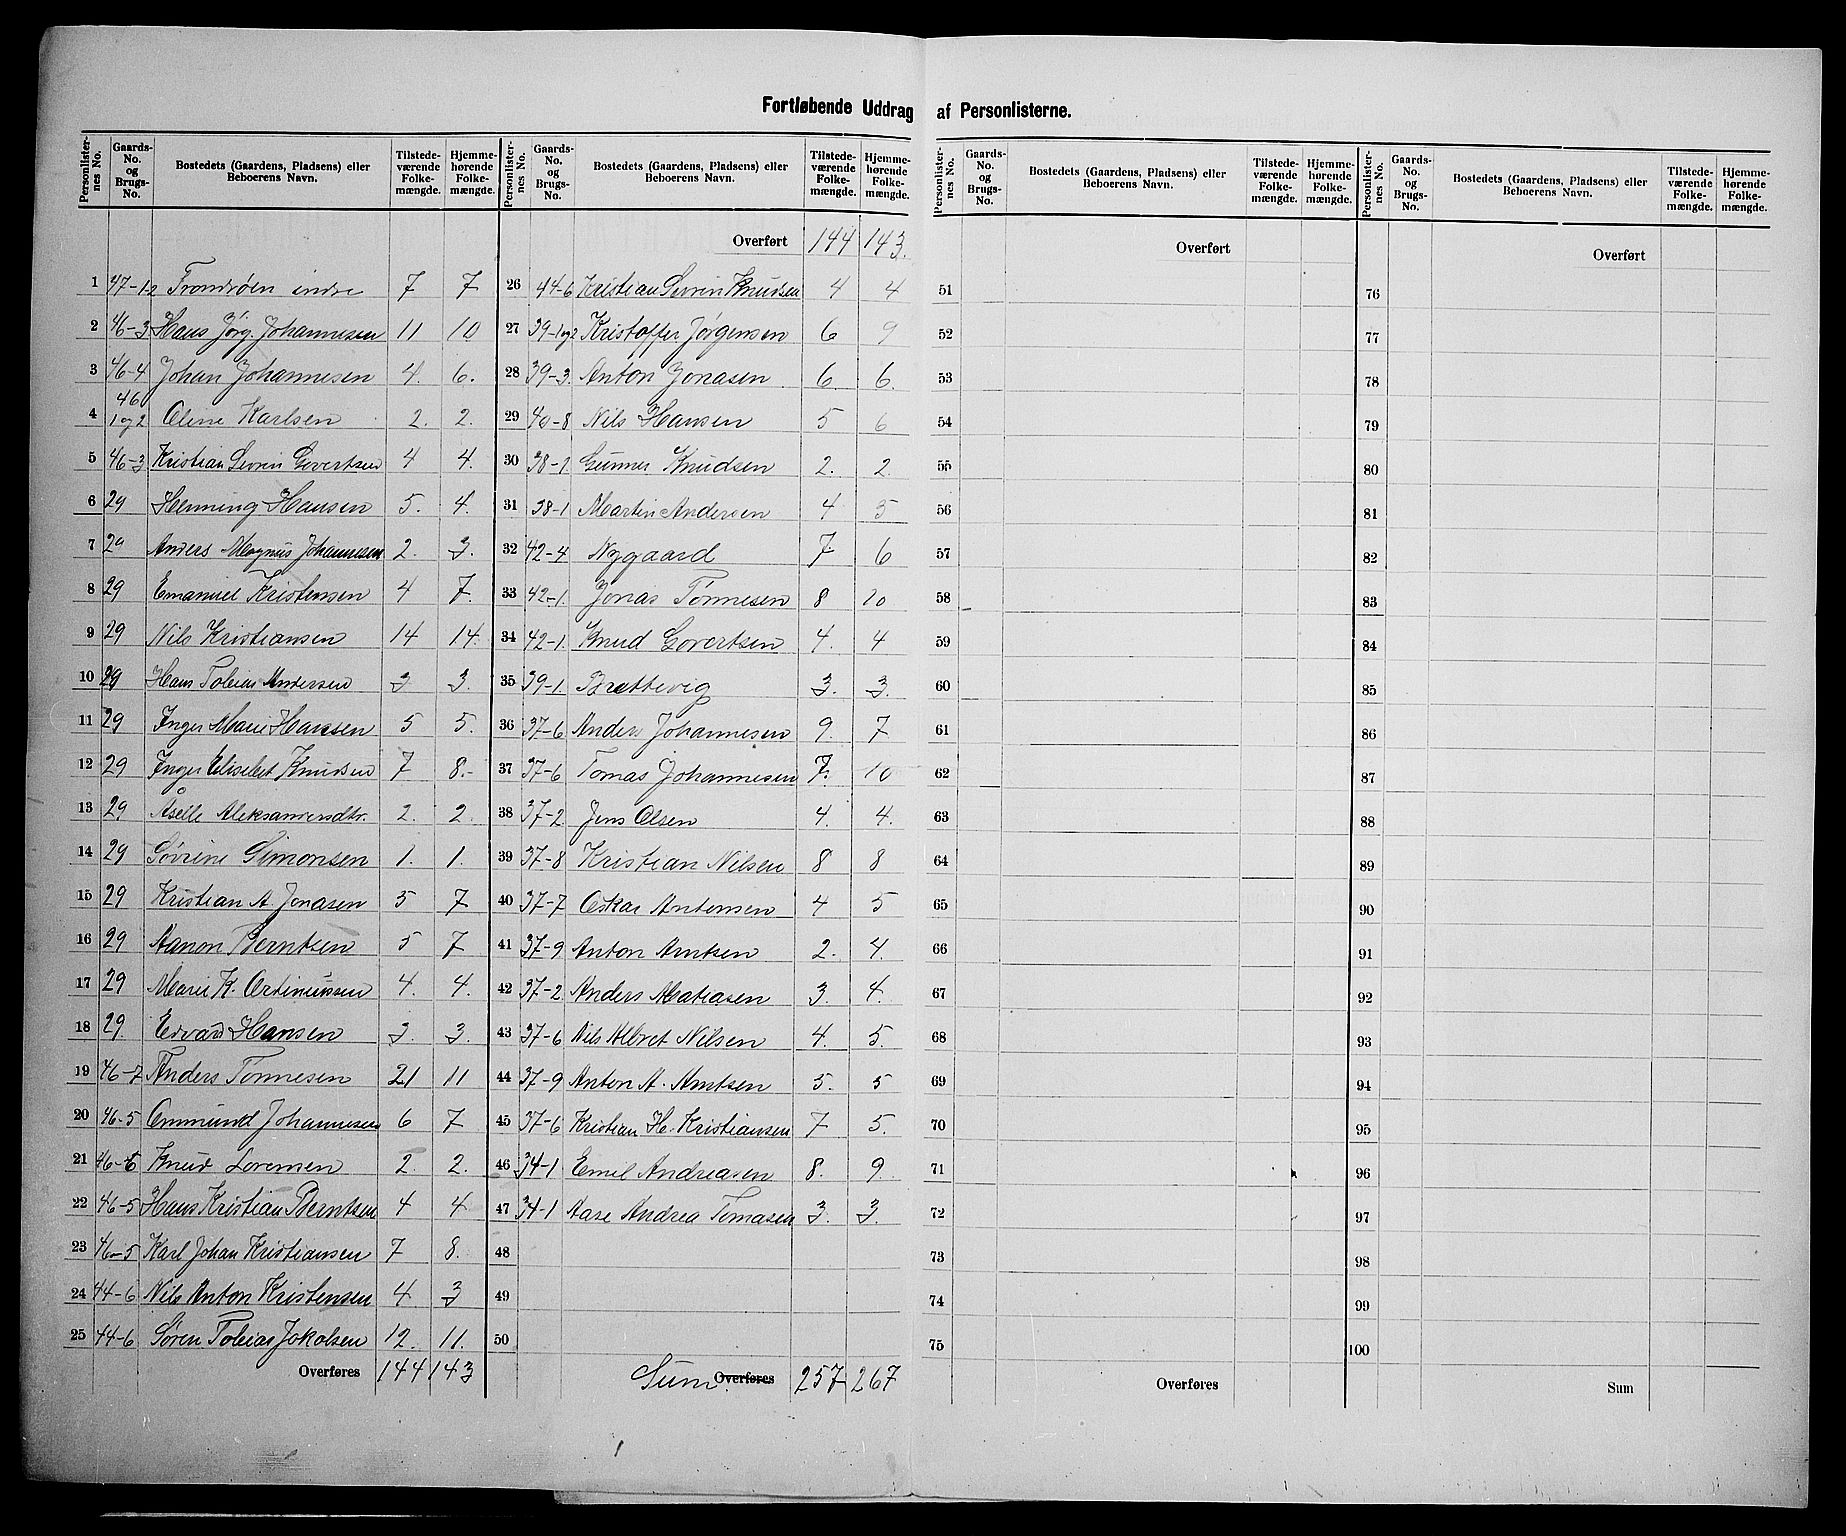 Fortløbende Uddrag af Personlisterne.
Personlisternes No. | Gaards-No. og Brugs-No. | Bostedets (Gaardens, Pladsens) eller Beboerens Navn. | Tilstedeværende Folkemængde. | Hjemmehørende Folkemængde.
1 47-1-2 Trondrøen indre 7 7
2 46-3 Hans Jørg. Johannesen 11 10
3 46-4 Johan Johannesen 4. 6.
4 46 1og2 Oline Karlsen 2. 2.
5 46-3 Kristian Sevrin Govertsen 4 4.
6 29 Henning Hansen 5. 4.
7 29 Anders Magnus Johannesen 2. 3.
8 29 Emanuel Kristensen 4 7.
9 29 Nils Kristiansen 14 14.
10 29 Hans Tobias Andersen 3 3.
11 29 Inger Marie Hansen 5 5.
12 29 Inger Elisebet Knudsen 7 8.-
13 29 Aselle Aleksandersdtr. 2. 2.
14 29 Sövrine Simonsen 1. 1.
15 29 Kristian A. Jonasen 5 7
16 29 Aanon Berntsen 5 7
17 29 Marie K. Ortinussen 4. 4.
18 29. Edvard Hansen 3. 3.
19 46-7 Anders Tönnesen 21 11
20 46-5 Ommund Johannesen 6 7
21 46-6 Knud Lorensen 2. 2.
22 46-5 Hans Kristian Berntsen 4 4
23 46-5 Karl Johan Kristiansen 7 8.
24 44-6 Nils Anton Kristensen 4 3
25 44-6 Søren Tobias Jakobsen 12. 11.
Overføres 144 143
Personlisternes No. | Gaards-No. og Brugs-No. | Bostedets (Gaardens, Pladsens) eller Beboerens Navn. | Tilstedeværende Folkemængde. | Hjemmehørende Folkemængde.
Overført 144 143.
26 44-6 Kristian Sevrin Knudsen 4 4
27 39-1og2 Kristoffer Jørgensen 6 9
28 39-3. Anton Jonasen 6. 6.
29 40-8 Nils Hansen 5 6
30 38-1 Gunner Knudsen 2. 2.
31 38-1 Martin Andersen 4 5
32 42-4 Nygaard 7 6
33 42-1. Jonas Tönnesen 8 10
34 42-1. Knud Govertsen 4. 4
35 39-1. Brattevig 3. 3.
36 37-6 Anders Johannesen 9. 7
37 37-6 Tomas Johannesen 7. 10
38 37-2. Jens Olsen 4. 4.
39 37-8 Kristian Nilsen 8 8
40 37-7 Oskar Antonsen 4 5
41 37-9 Anton Arntsen 2. 4.
42 37-2. Anders Matiasen 3. 4.
43 37-6 Nils Albret Nilsen 4. 5.
44 37-9 Anton A. Arntsen 5. 5
45 37-6 Kristian H. Kristiansen 7 5.
46 34-1 Emil Andreasen 8. 9.
47 34-1 Aase Andrea Tomasen 3. 3.
48
49
50
Sum. Overføres 257 267
Personlisternes No. | Gaards-No. og Brugs-No. | Bostedets (Gaardens, Pladsens) eller Beboerens Navn. | Tilstedeværende Folkemængde. | Hjemmehørende Folkemængde.
Overført
51
52
53
54
55
56
57
58
59
60
61
62
63
64
65
66
67
68
69
70
71
72
73
74
75
Overføres
Personlisternes No. | Gaards-No. og Brugs-No. | Bostedets (Gaardens, Pladsens) eller Beboerens Navn. | Tilstedeværende Folkemængde. | Hjemmehørende Folkemængde.
Overført
76
77
78
79
80
81
82
83
84
85
86
87
88
89
90
91
92
93
94
95
96
97
98
99
100
Sum